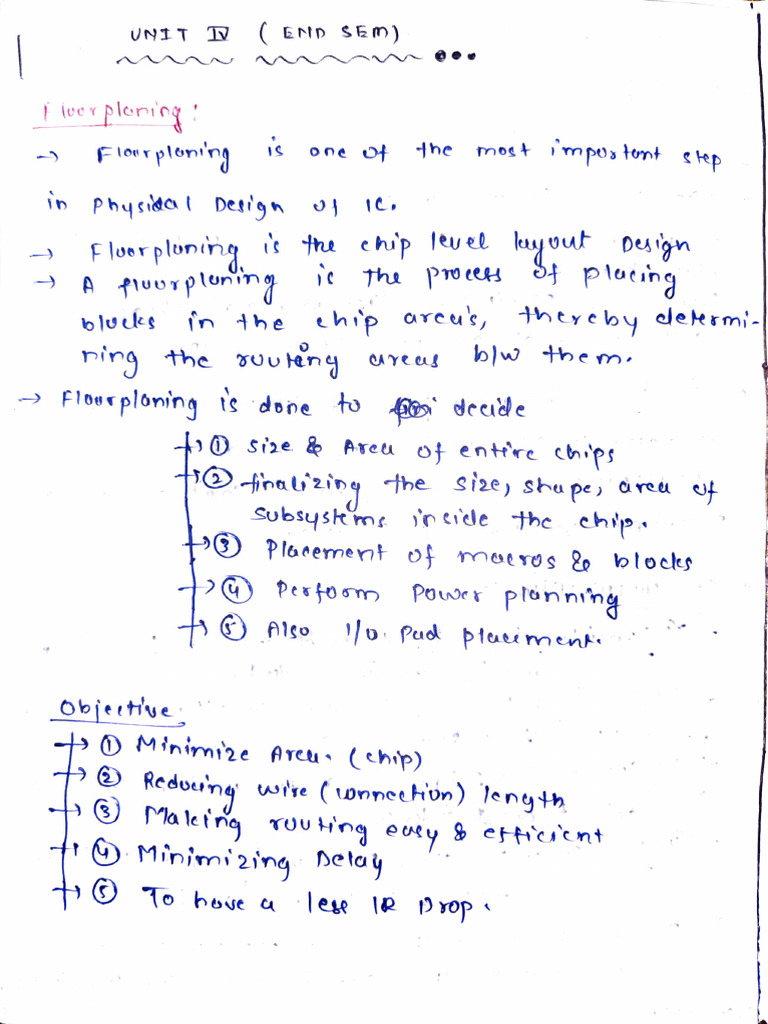 UNIT IV ( END SEM)
Floorplaning :
→ Floorplaning is one of the most important step
in Physical Design of IC.
→ Floorplaning is the chip level layout Design
→ A floorplaning is the process of placing
blocks in the chip area's, thereby determi-
ning the routing areas b/w them.
→ Floorplaning is done to decide
→ ① Size & Area of entire chips
→ ② finalizing the size, shape, area of
subsystems inside the chip.
→ ③ Placement of macros & blocks
→ ④ Perform Power planning
→ ⑤ Also I/O Pad placement.
Objective
→ ① Minimize Area. (chip)
→ ② Reducing wire (connection) length
→ ③ Making routing easy & efficient
→ ④ Minimizing Delay
→ ⑤ To have a less IR Drop.